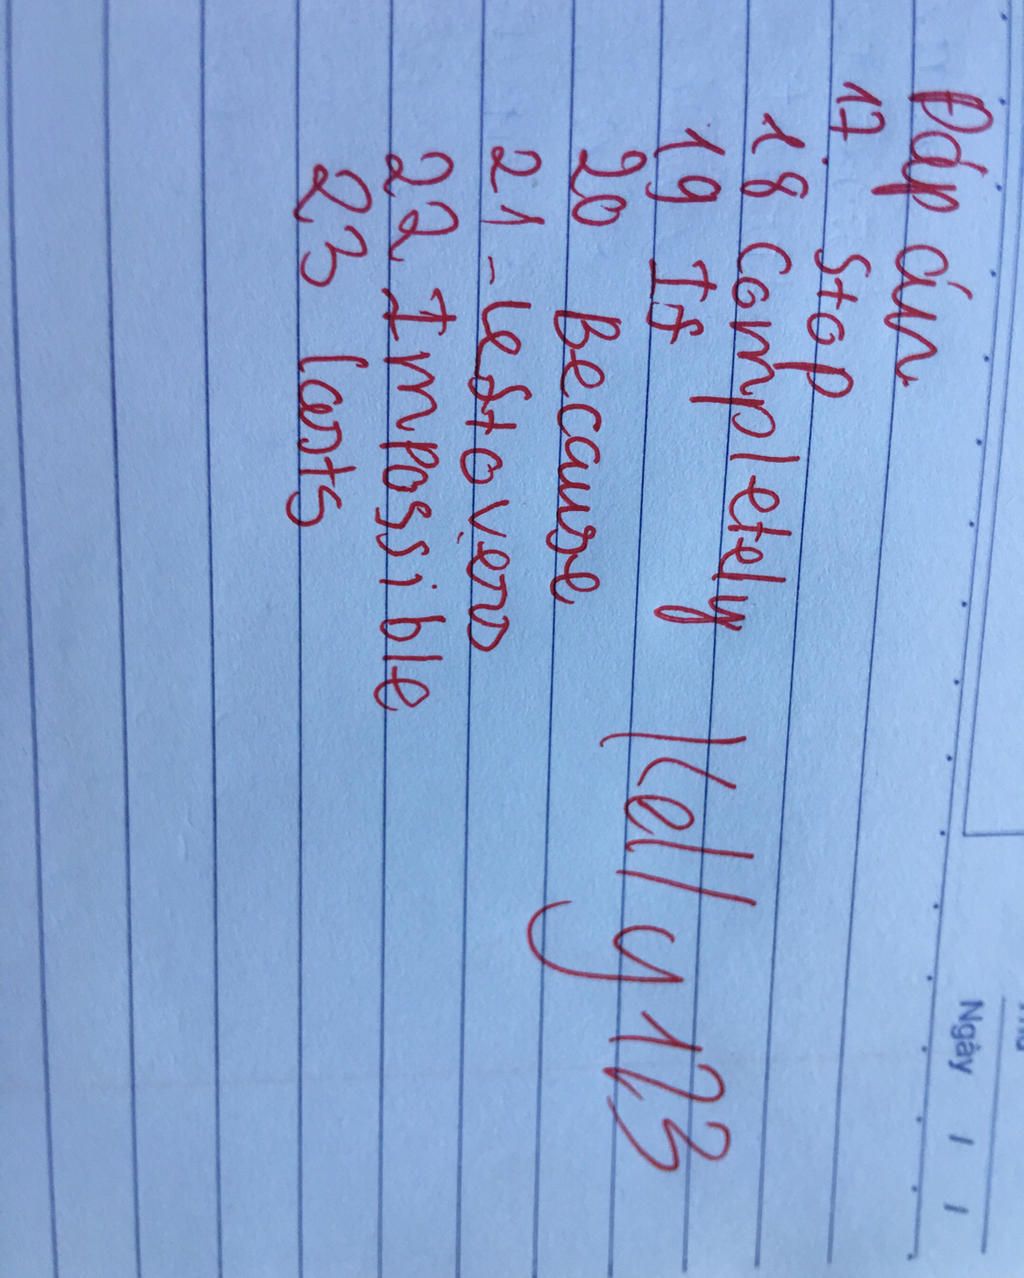 Ngày / /
Đáp án
17. stop
18 completely
19 If
20 Because
21 - leftovers
22 Impossible
23 lasts
Kelly123